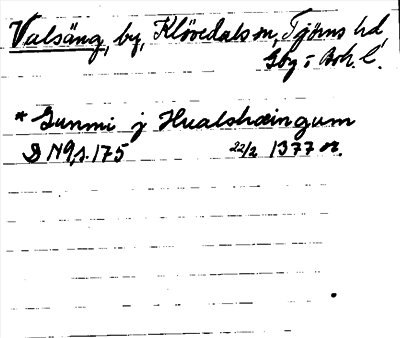 Valsäng, by, Klövedals sn, Tjörns hd,
Gbg o Boh. l.
* Gunmi j Hualshæingum
D N 9, s. 175 22/2 1377 or.